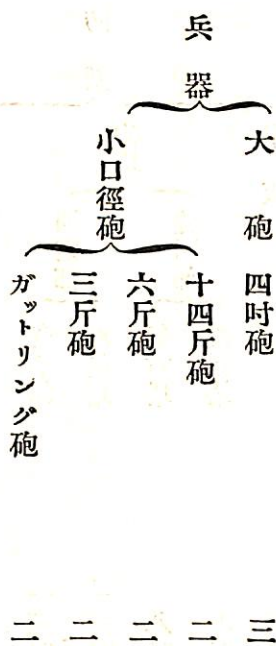 兵器
大砲 四吋砲 三
小口徑砲 十四斤砲 二
六斤砲 二
三斤砲 二
ガットリング砲 二